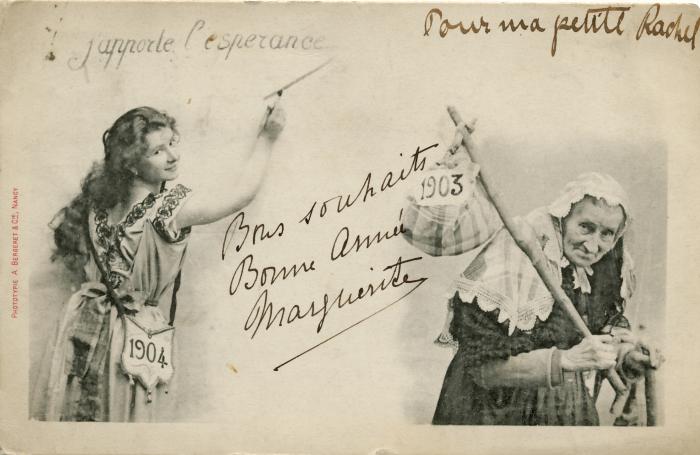 j'apporte l'esperance
Pour ma petite Rachel
1903
Bons souhaits
Bonne Année
Marguerite
1904
PHOTOTYPIE A. BERGERET & Cie, NANCY